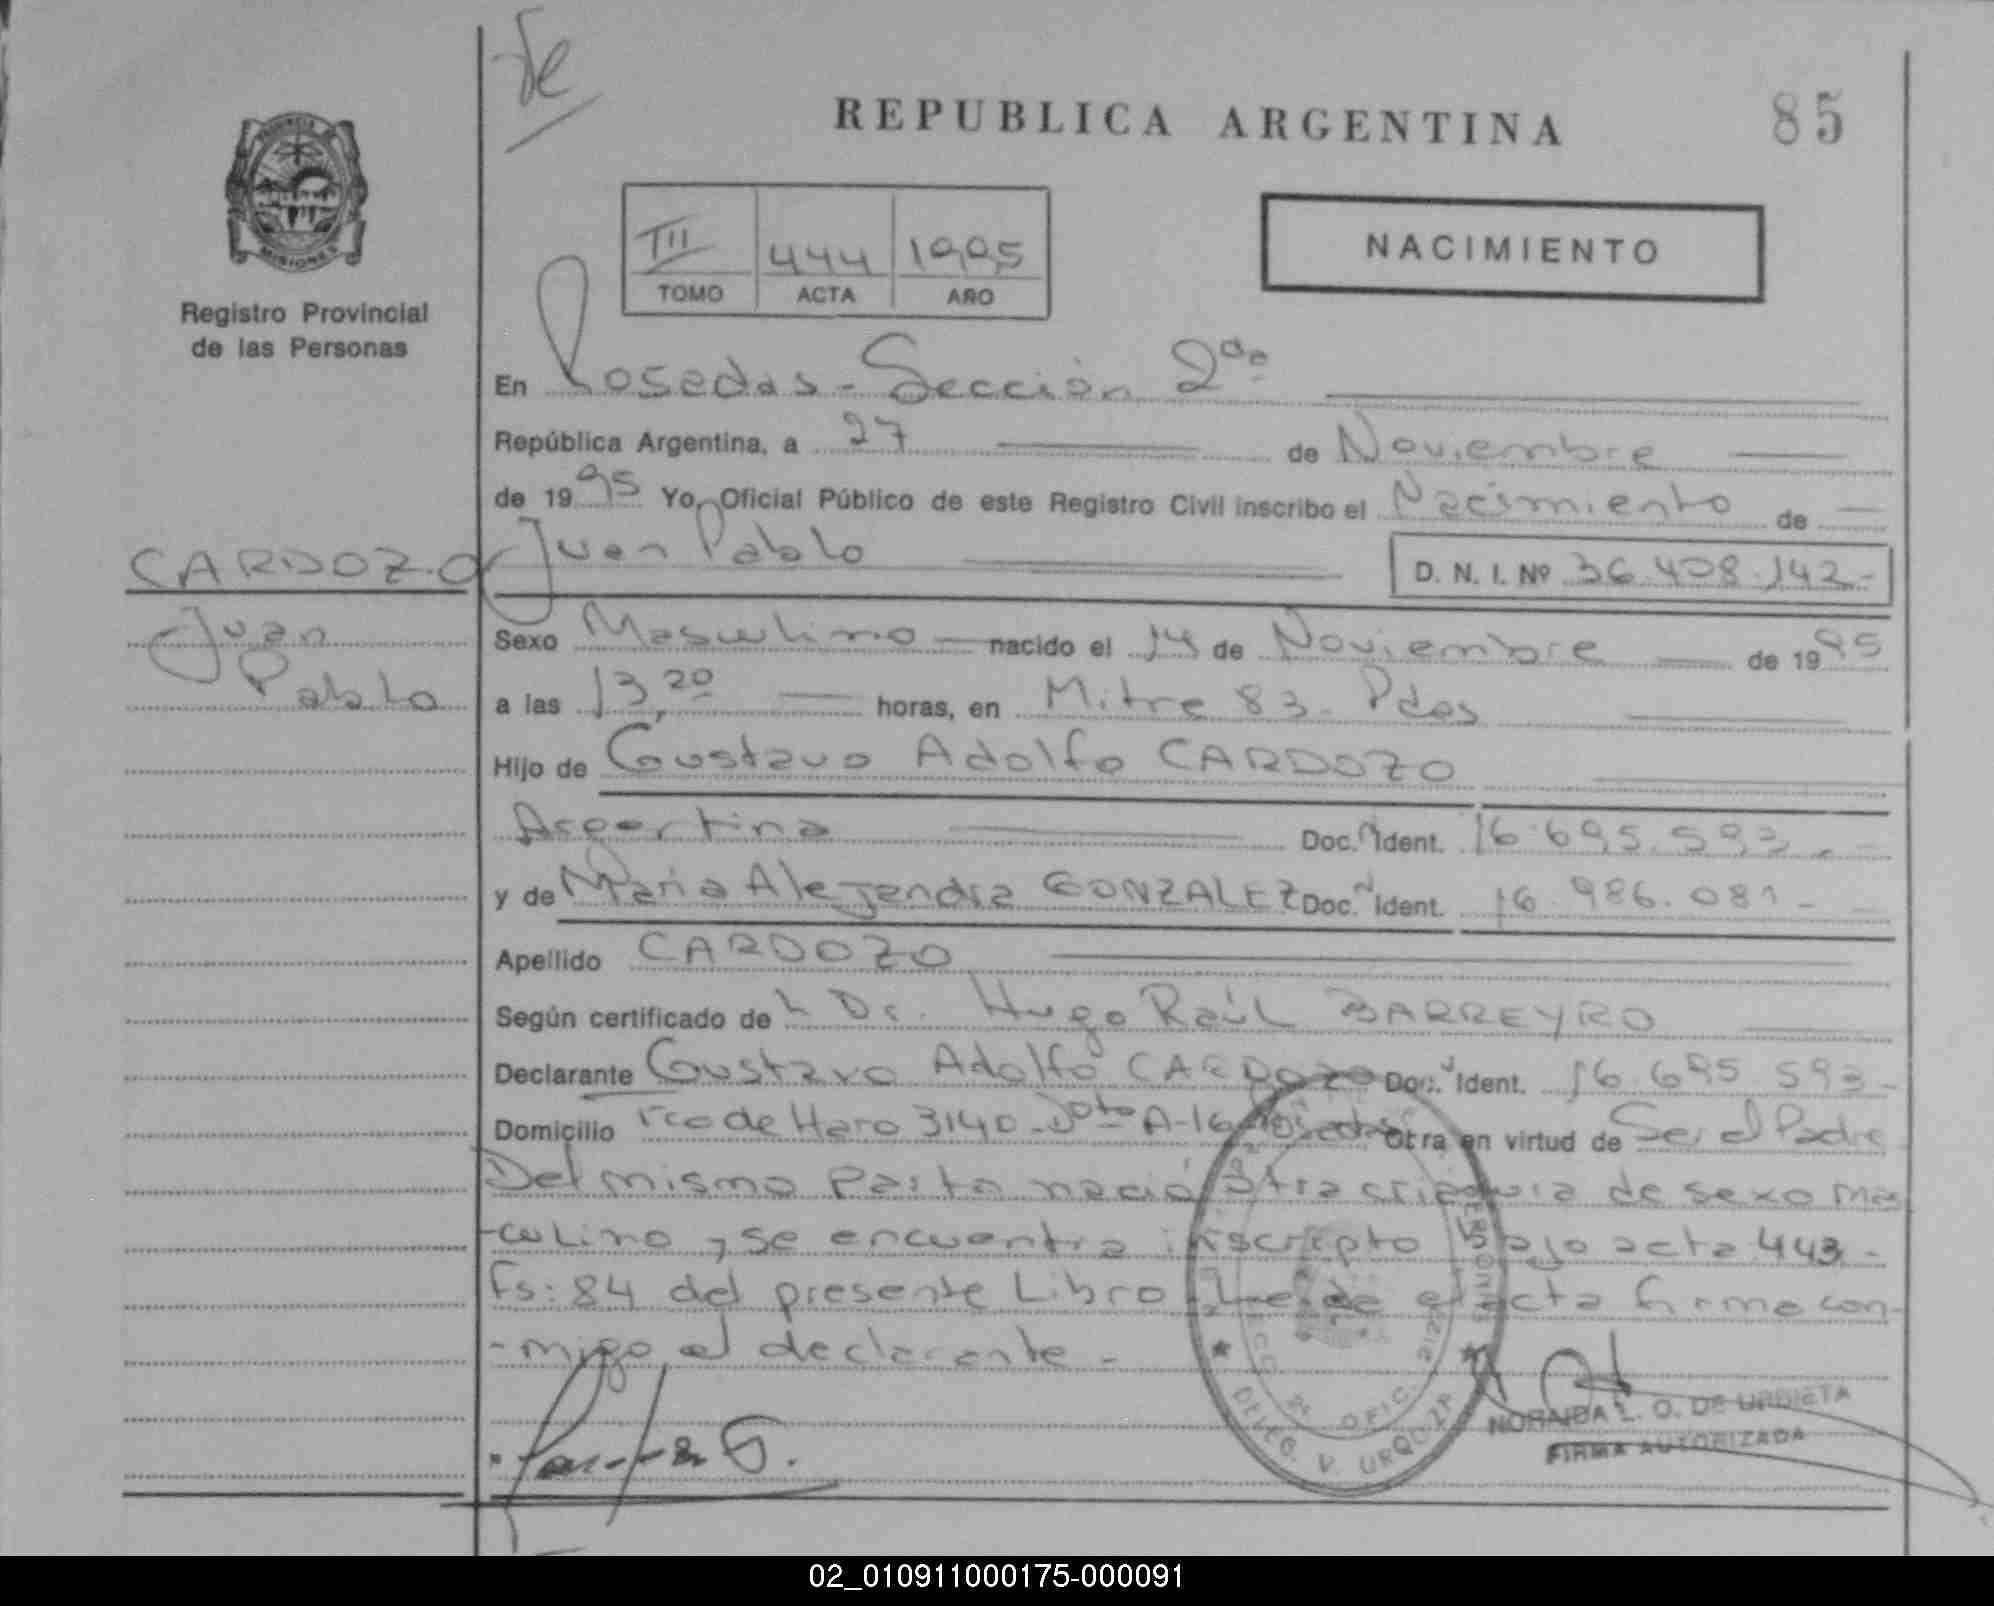 REPUBLICA ARGENTINA
85
PROVINCIA DE
MISIONES
Registro Provincial
de las Personas
III 444 1995
TOMO ACTA AÑO
NACIMIENTO
En Posedas - Sección 2da
República Argentina, a 27 de Noviembre
de 1995 Yo, Oficial Público de este Registro Civil inscribo el Nacimiento de
CARDOZO Juan Pablo D. N. I. Nº 36.408.142.-
Juan
Pablo
Sexo Masculino nacido el 14 de Noviembre de 1995
a las 13,20 horas, en Mitre 83 - Pdas
Hijo de Gustavo Adolfo CARDOZO
Argentina Doc. Ident. 16.695.593.-
y de María Alejandra GONZALEZ Doc. Ident. 16.986.081-
Apellido CARDOZO
Según certificado de l Dr. Hugo Raúl BARREYRO
Declarante Gustavo Adolfo CARDOZO Doc. Ident. 16.695.593-
Domicilio Fco de Haro 3140 - Dpto A-16 Posadas Otra en virtud de Ser el Padre
Del mismo parto nació otra criatura de sexo mas
-culino, se encuentra inscripto bajo acta 443.-
Fs: 84 del presente Libro Leida el acta firma con-
-migo el declarante -
DELEG. V. URQUIZA
NORAIDA L. O. DE URDIETA
FIRMA AUTORIZADA
02_010911000175-000091